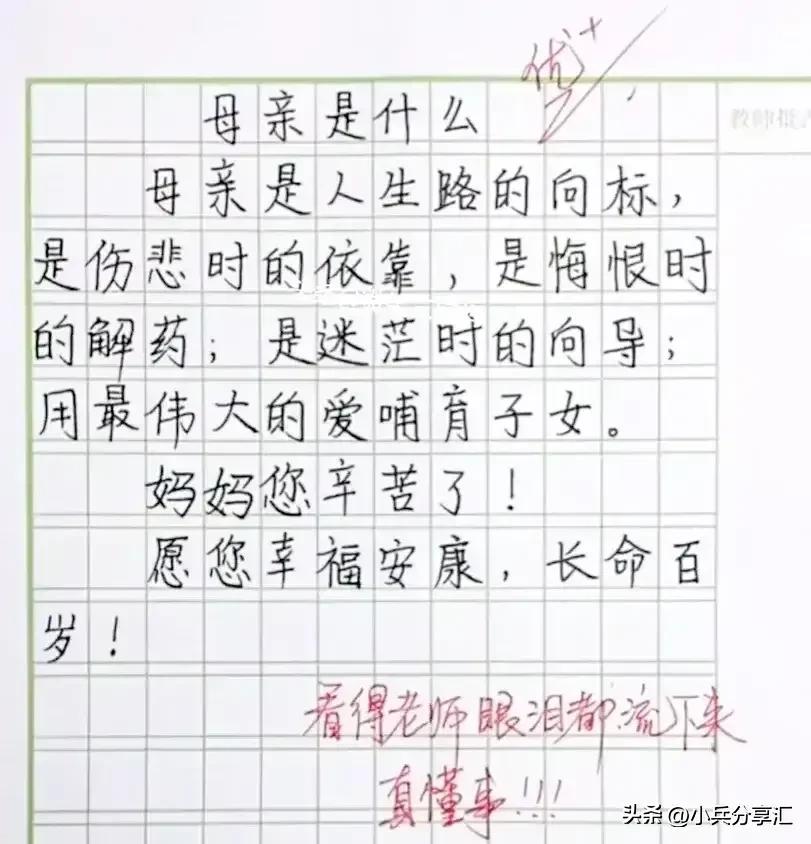 优+
母亲是什么
教师批
母亲是人生路的向标，
是伤悲时的依靠，是悔恨时
的解药；是迷茫时的向导；
用最伟大的爱哺育子女。
妈妈您辛苦了！
愿您幸福安康，长命百
岁！
看得老师眼泪都流下来
真懂事!!!
头条 @小兵分享汇